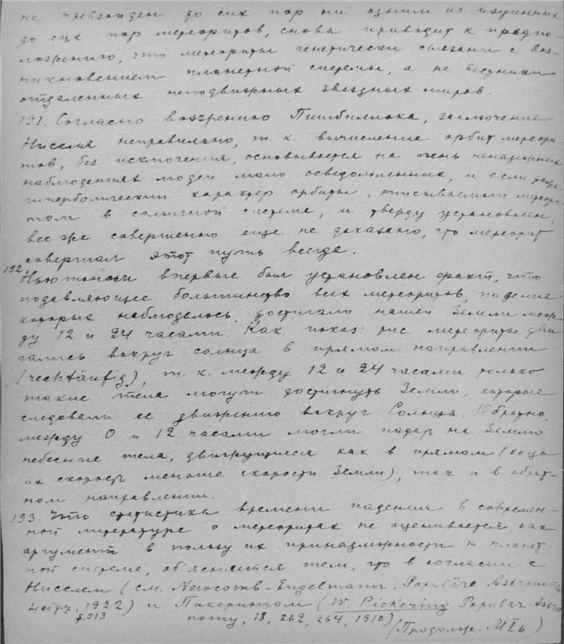 не превзойден до сих пор ни одним из изученных
до сих пор метеоритов, снова приводит к предпо-
ложению, что метеориты генетически связаны с воз-
никновением планетной системы, а не вестники
отдаленных неподвижных звездных миров.
191. Согласно воззрению заключение
Ниссля неправильно, т. к. вычисление орбит метеори-
тов, без исключения, основывается на очень ненадежных
наблюдениях людей мало осведомленных, и если даже
гиперболический характер орбиты, описываемой метеори-
том в солнечной системе, и твердо установлен,
все же совершенно еще не доказано, что метеорит
совершал этот путь всегда.
192. впервые был установлен факт, что
подавляющее большинство всех метеоритов, падение
которых наблюдалось, достигало нашей Земли меж-
ду 12 и 24 часами. Как показ. рис. метеориты дви-
гались вокруг солнца в прямом направлении
(rechtläufig), т. к. между 12 и 24 часами только
такие тела могут достигнуть Земли, которые
следовали ее движению вокруг Солнца. Обратно,
между 0 и 12 часами могли падать на Землю
небесные тела, движущиеся как в прямом (когда
их скорость меньше скорости Земли), так и в обрат-
ном направлении.
193. Что статистика времени падения в современ-
ной литературе о метеоритах не оценивается, как
аргумент в пользу их принадлежности к планет-
ной системе, объясняется тем, что в согласии с
Нисслем (см. Newcomb-Engelmann: Populäre Astronomie
Leipz. 1922) и Пикерингом (W. Pickering Popular Astro-
S. 313 nomy, 18, 262, 264, 1910)
(Продолж. М I b)